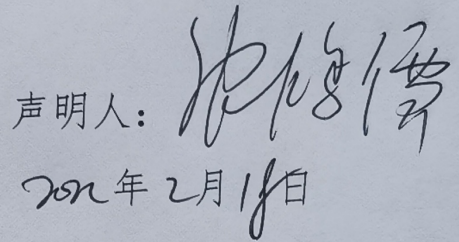 声明人：
2022年2月18日